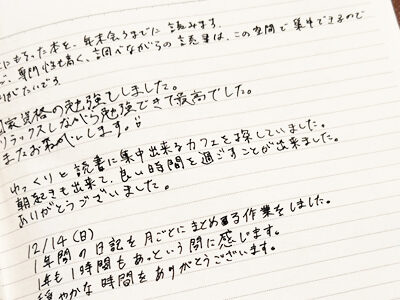 にもらった本を、年末会うまでに 読みます。
専門性も高く、調べながらの読書は、この空間で集中できるので
がたいです
資格の勉強をしました。
リラックスしながら勉強できて最高でした。
またお願いします。
ゆっくりと読書に集中出来るカフェを探していました。
朝起きも出来て、良い時間を過ごすことが出来ました。
ありがとうございました。
12/14(日)
1年間の日記を月ごとにまとめる作業をしました。
1年も1時間もあっという間に感じます。
穏やかな時間をありがとうございます。